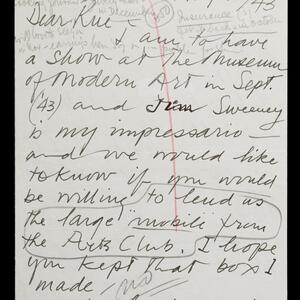 '43
in December
Insurance
Dear Rue –
I am to have
a show at the Museum
of Modern Art in Sept.
('43) and Jim Sweeney
is my impressario –
and we would like
to know if you would
be willing to lend us
the large "mobile" from
the Arts Club. I hope
you kept that box I
made, no